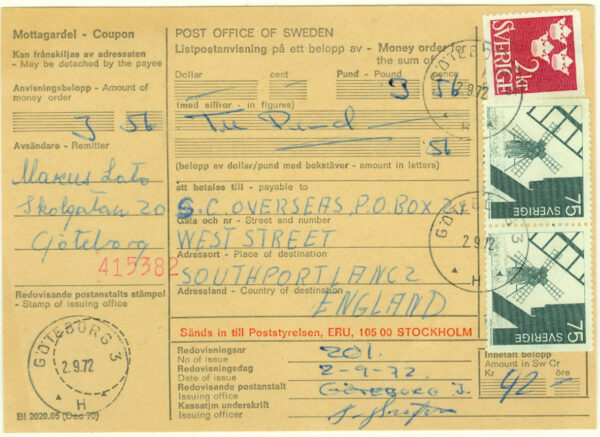 Mottagardel - Coupon
Kan frånskiljas av adressaten
- May be detached by the payee
Anvisningsbelopp - Amount of
money order
3 56
Avsändare - Remitter
Marcus
Skolgatan 20
Göteborg
415382
Redovisande postanstalts stämpel
- Stamp of issuing office
GÖTEBORG 3
2.9.72
H
BI 2020.05 (Dec 70)
POST OFFICE OF SWEDEN
Listpostanvisning på ett belopp av - Money order for
the sum of
Dollar cent Pund - Pound pence
3 56
(med siffror - in figures)
Pund
56
(belopp av dollar/pund med bokstäver - amount in letters)
att betalas till - payable to
S.C. OVERSEAS, P.O BOX
Gata och nr - Street and number
WEST STREET
Adressort - Place of destination
SOUTHPORT LANCS
Adressland - Country of destination
ENGLAND
Sänds in till Poststyrelsen, ERU, 105 00 STOCKHOLM
Redovisningsnr
No of issue
201.
Redovisningsdag
Date of issue
2-9-72
Redovisande postanstalt
Issuing office
GÖTEBORG 3.
Kassatjm underskrift
Issuing officer
Inbetalt belopp
Amount in Sw Cr
Kr öre
42 -
SVERIGE
2 kr
GÖTEBORG 3
2.9.72
H
75
SVERIGE
GÖTEBORG 3
2.9.72
H
75
SVERIGE